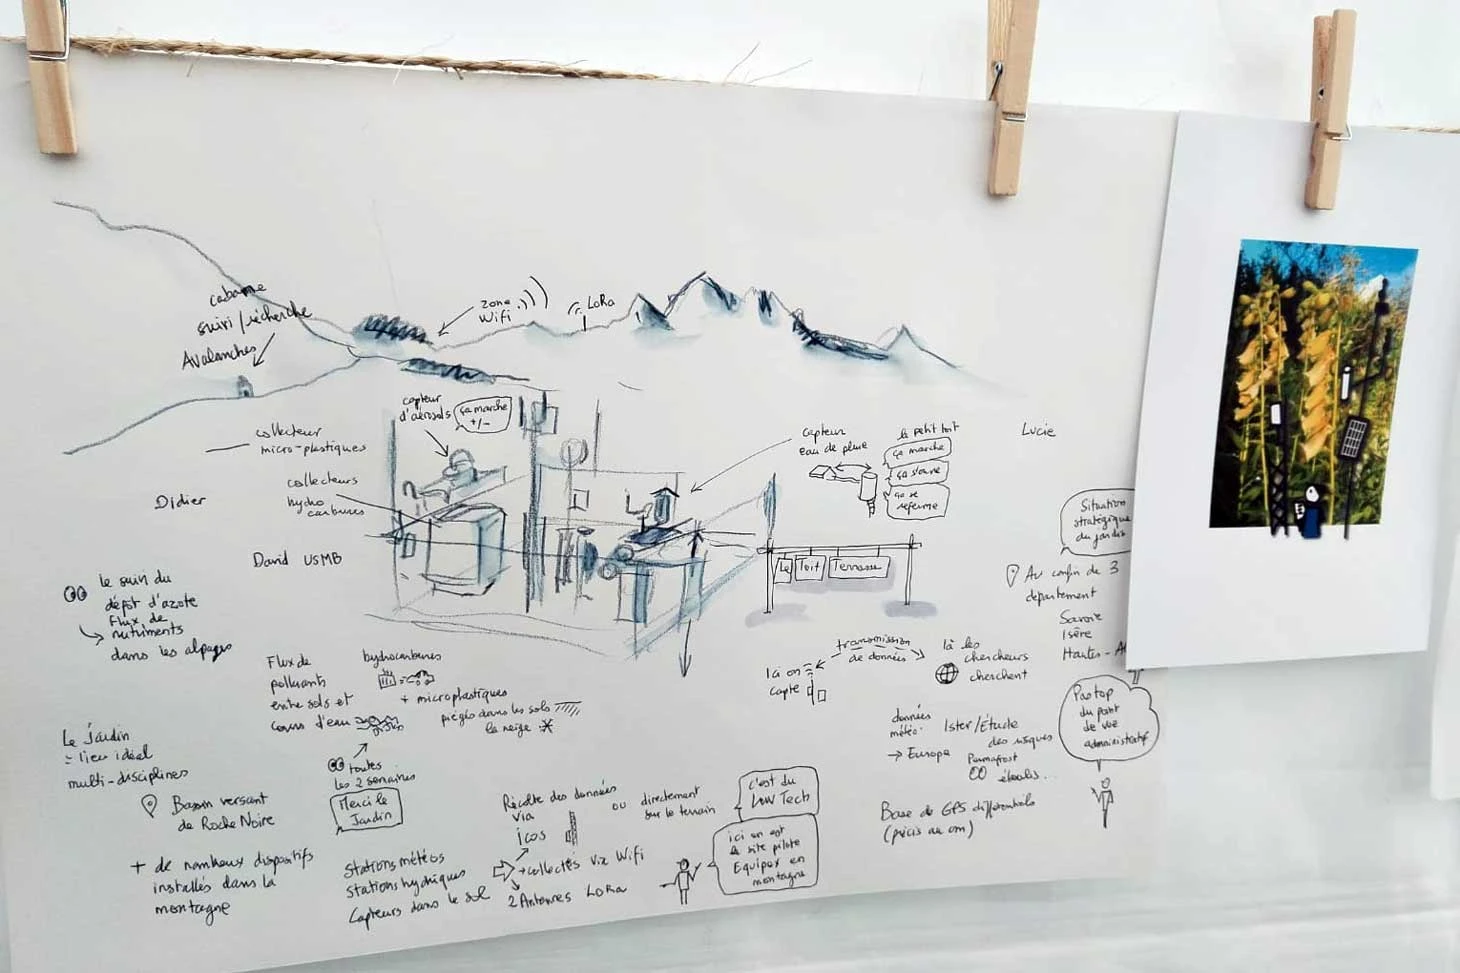 cabane
suivi/recherche
Avalanches
zone
Wifi
LoRa
capteur
d'aérosols
ça marche
+/-
collecteur
micro-plastiques
collecteurs
hydro
carbures
Didier
David USMB
capteur
eau de pluie
le petit toit
ça marche
ça s'ouvre
ça se
referme
Lucie
Le Toit Terrasse
Situation
stratégique
du jardin
Au confin de 3
département
Savoie
Isère
Hautes-A
le suivi du
dépôt d'azote
Flux de
nutriments
dans les alpages
Flux de
polluants
entre sols et
cours d'eau
hydrocarbures
+ microplastiques
piégés dans les sols
la neige
toutes
les 2 semaines
Merci le
Jardin
Le Jardin
= lieu idéal
multi-disciplines
Bassin versant
de Roche Noire
+ de nombeux dispositifs
installés dans la
montagne
Stations météos
stations hydriques
Capteurs dans le sol
Récolte des données
via
icos
ou directement
sur le terrain
→ collectés via Wifi
2 Antennes LoRa
c'est du
Low Tech
ici on est
site pilote
Equipex en
montagne
Ici on
capte
transmission
de données
là les
chercheurs
cherchent
données
météo
→ Europe
Ister/Étude
des risques
Permafrost
Base de GPS différentiels
(précis au cm)
Pas top
du point
de vue
administratif